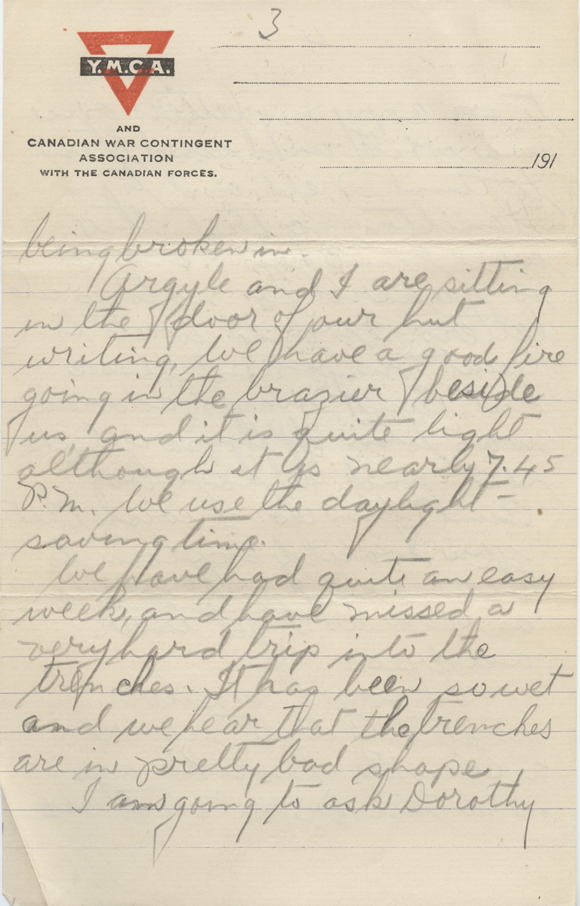 3
Y.M.C.A.
AND
CANADIAN WAR CONTINGENT
ASSOCIATION
WITH THE CANADIAN FORCES.
191
being broken in.
Argyle and I are sitting
in the door of our hut
writing, We have a good fire
going in the brazier beside
us, and it is quite light
although it is nearly 7.45
P.M. We use the daylight-
saving time.
We have had quite an easy
week, and have missed a
very hard trip into the
trenches. It has been so wet
and we hear that the trenches
are in pretty bad shape
I am going to ask Dorothy